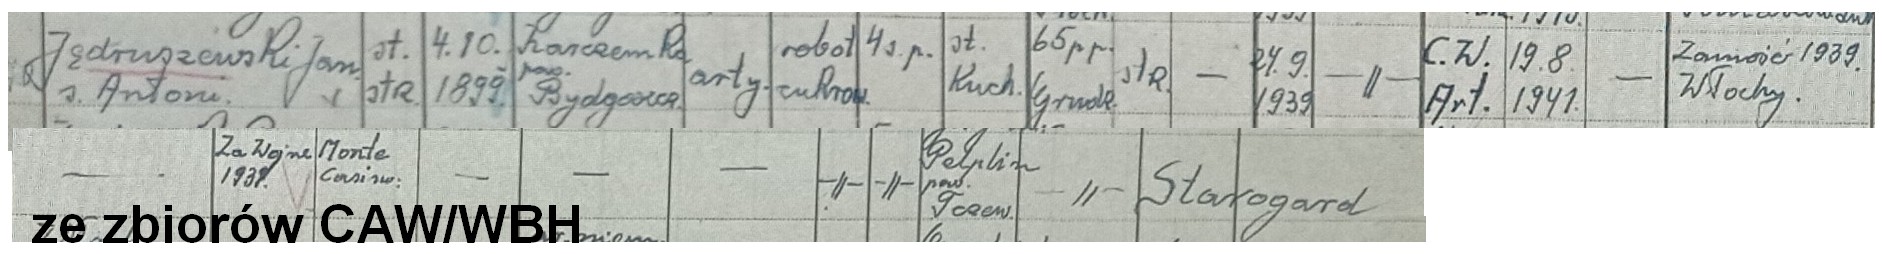 Jędruszewski Jan st. 4.10. Karczemka robot 4 s.p. st. 65 pp. 24.9. C.W. 19.8. Zamość 1939.
s. Antoni. str. 1899. pow. Bydgoszcz arty. cukrow. Kuch. Grudz. str. — 1939 —〃— Art. 1941. — Włochy.
— Za Wojnę Monte — — — —〃— —〃— Pelplin —〃— Starogard
1939. Casino. pow.
Tczew.
ze zbiorów CAW/WBH